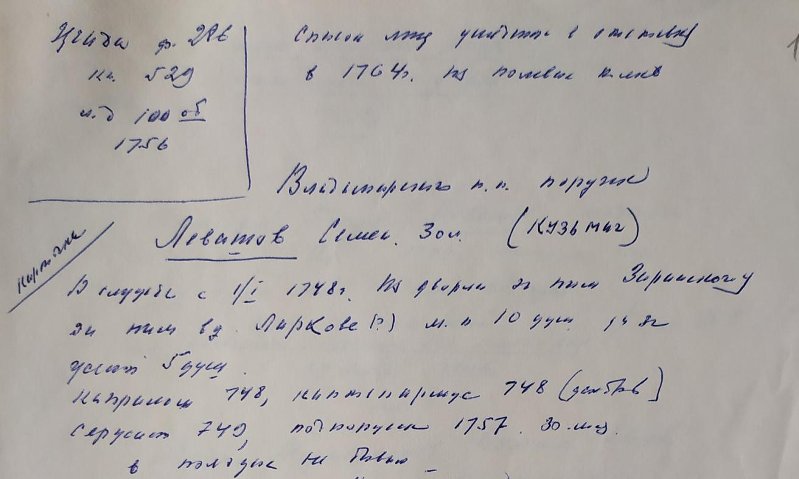 ЦГАДА ф. 286
кн. 529
л.д 100 об
1756
Список лиц в отставку
в 1764г. из полевых полков
Владимирского п.п. поручик
Карточка
Левашов Семен. 30 л. (Кузьмич)
В службе с 1/I 1748г. Из дворян за ним Зарайского у
за ним в д. Ларкове (?) м.п 10 душ
5 душ
Капралом 748, каптенармус 748 (декабрь)
Сержант 749, подпоручик 1757. 30.
в не бывал